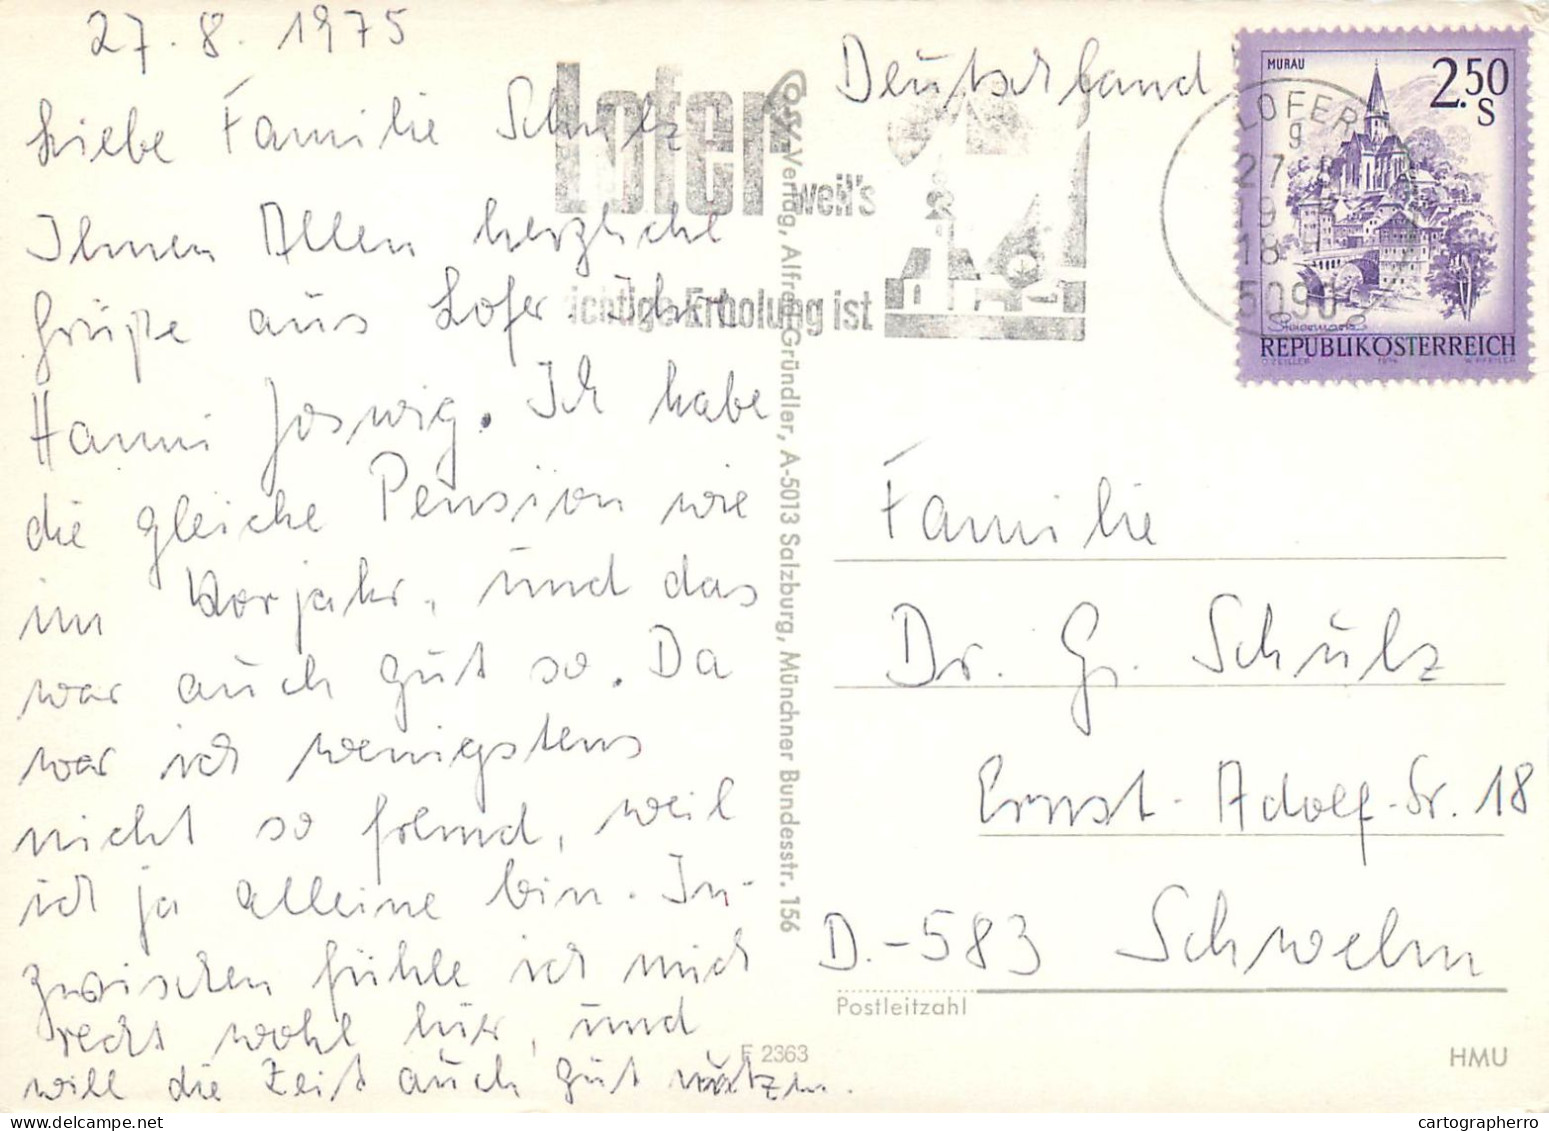 27.8.1975
Liebe Familie Schulz
Ihnen Allen herzliche
Grüße aus Lofer Ihre
Hanni Joswig. Ich habe
die gleiche Pension wie
im Vorjahr, und das
war auch gut so. Da
war ich wenigstens
nicht so fremd, weil
ich ja alleine bin. In-
zwischen fühle ich mich
recht wohl hier, und
will die Zeit auch gut nützen.
Lofer
weil's
richtige Erholung ist
COSY-Verlag, Alfred Gründler, A-5013 Salzburg, Münchner Bundesstr. 156
F 2363
Deutschland
MURAU
2.50
S
Steiermark
REPUBLIK ÖSTERREICH
1974
LOFER
g
27
19
18
5090
Familie
Dr. G. Schulz
Ernst-Adolf-Str. 18
D.-583 Schwelm
Postleitzahl
HMU
cartographerro